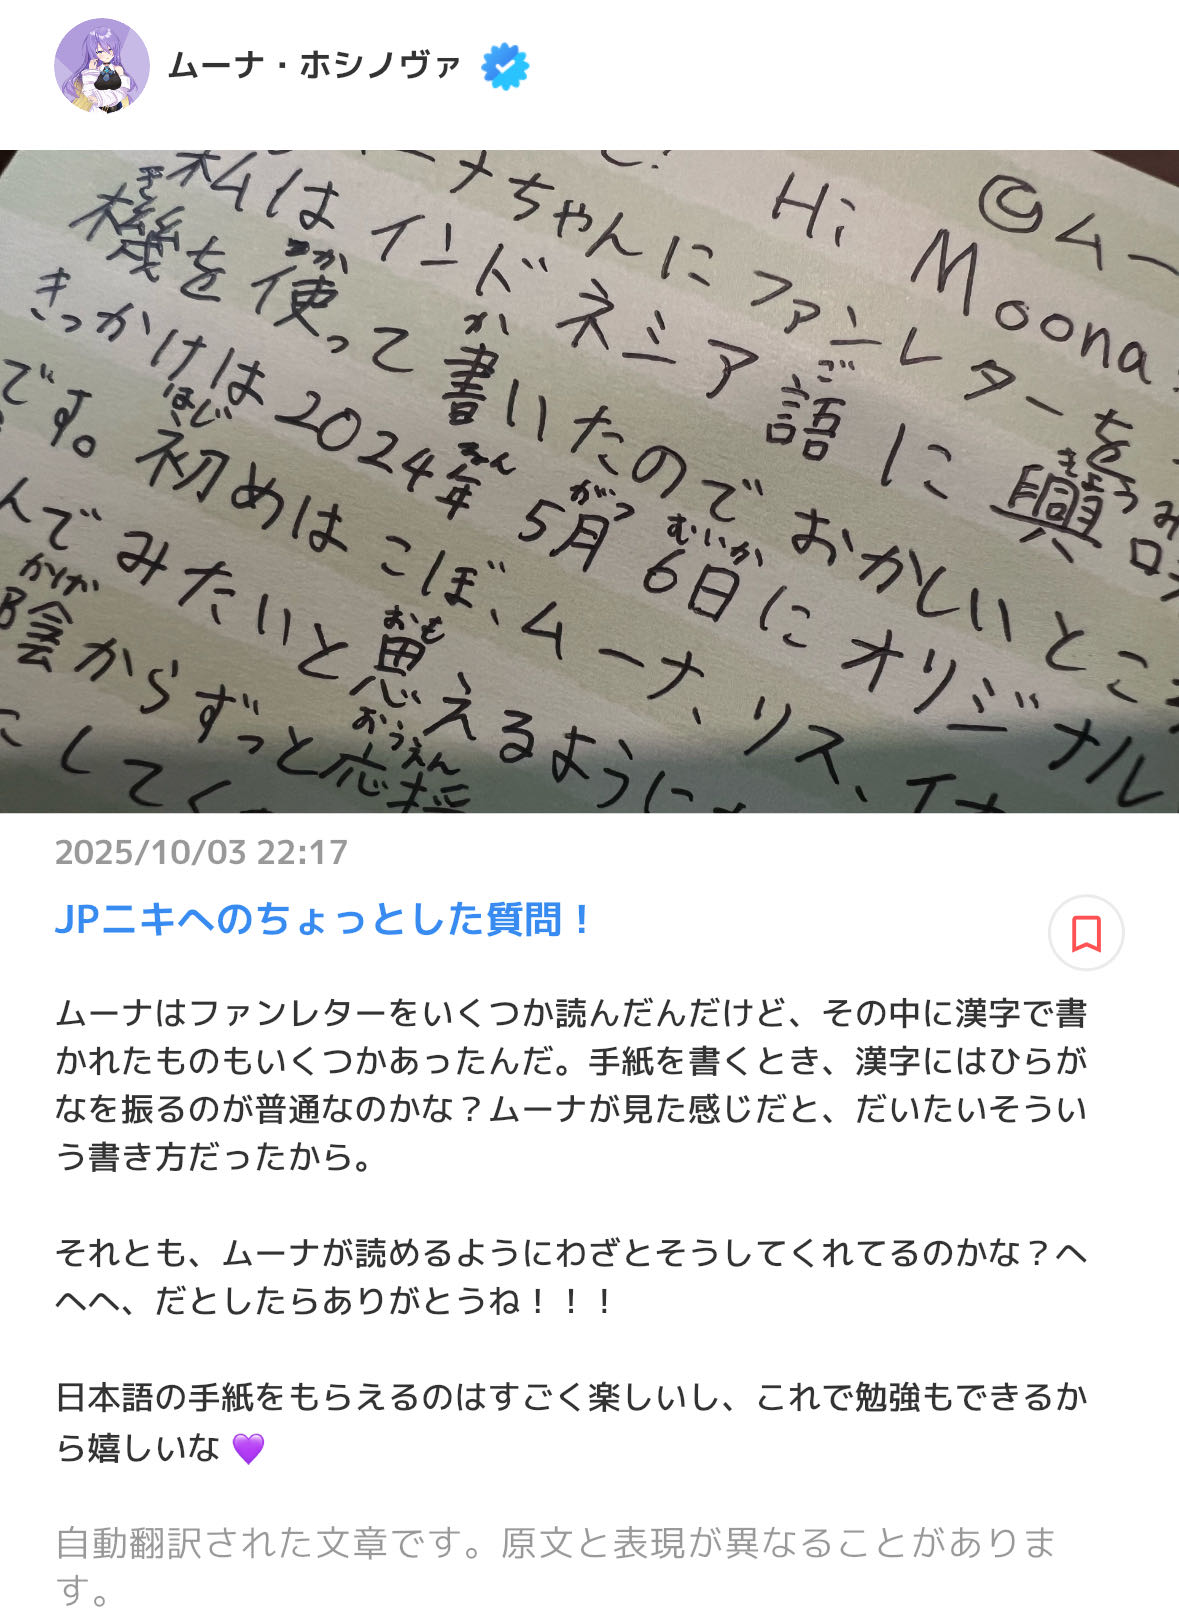 ムーナ・ホシノヴァ
©ムー
Hi Moona
ーナちゃんにファンレターを
私はインドネシア語に興味
ご
きょうみ
き
機を使って書いたのでおかしいとこ
つか
か
きっかけは2024年5月6日にオリジナル
ねん
がつ
むいか
です。初めはこぼ、ムーナ、リス、イナ
はじ
んでみたいと思えるように
おも
陰からずっと応援
かげ
おうえん
にしてく
2025/10/03 22:17
JPニキへのちょっとした質問！
ムーナはファンレターをいくつか読んだんだけど、その中に漢字で書
かれたものもいくつかあったんだ。手紙を書くとき、漢字にはひらが
なを振るのが普通なのかな？ムーナが見た感じだと、だいたいそうい
う書き方だったから。
それとも、ムーナが読めるようにわざとそうしてくれてるのかな？へ
へへ、だとしたらありがとうね！！！
日本語の手紙をもらえるのはすごく楽しいし、これで勉強もできるか
ら嬉しいな 💜
自動翻訳された文章です。原文と表現が異なることがありま
す。